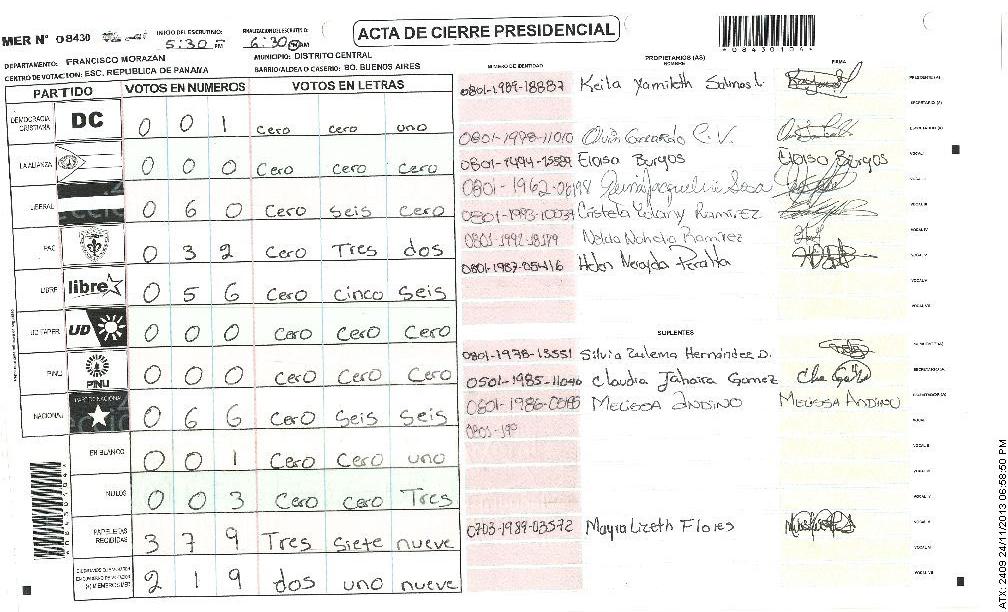 ACTA DE CIERRE PRESIDENCIAL
MER N° 08430
INICIO DEL ESCRUTINIO: 5:30 PM
FINALIZACION DEL ESCRUTINIO: 6:30 PM AM
08430104
DEPARTAMENTO: FRANCISCO MORAZAN
MUNICIPIO: DISTRITO CENTRAL
CENTRO DE VOTACION: ESC. REPUBLICA DE PANAMA
BARRIO/ALDEA O CASERIO: BO. BUENOS AIRES
PARTIDO VOTOS EN NUMEROS VOTOS EN LETRAS
DEMOCRACIA CRISTIANA DC 0 0 1 cero cero uno
LA ALIANZA 0 0 0 Cero cero cero
LIBERAL 0 6 0 Cero Seis cero
PAC 0 3 2 Cero Tres dos
LIBRE libre 0 5 6 Cero cinco Seis
UD FAPER UD 0 0 0 Cero Cero Cero
PINU PINU 0 0 0 Cero Cero Cero
NACIONAL 0 6 6 Cero Seis Seis
EN BLANCO 0 0 1 Cero Cero uno
NULOS 0 0 3 Cero Cero Tres
PAPELETAS RECIBIDAS 3 7 9 Tres Siete nueve
2 1 9 dos uno nueve
NUMERO DE IDENTIDAD
PROPIETARIOS (AS)
NOMBRE
FIRMA
0801-1989-18887 Keila Yamileth Salinas L. PRESIDENTE(A)
SECRETARIO (A)
0801-1998-11010 ESCRUTADOR (A)
Eloisa Burgos Eloiso Burgos VOCAL I
VOCAL II
Ramirez VOCAL III
Ramirez VOCAL IV
0801-1987-05416 Peralta VOCAL V
VOCAL VI
VOCAL VII
SUPLENTES
0801-1978-13551 Silvia Zulema Hernández D.
0501-1985-11040 Claudia Jahaira Gomez SECRETARIO (A)
MELISSA ANDINO MELISSA ANDINO ESCRUTADOR (A)
0801-199 VOCAL I
VOCAL II
VOCAL III
VOCAL IV
0703-1989-03572 Mayra Lizeth Flores VOCAL V
VOCAL VI
VOCAL VII
ATX: 2409 24/11/2013 06:58:50 PM